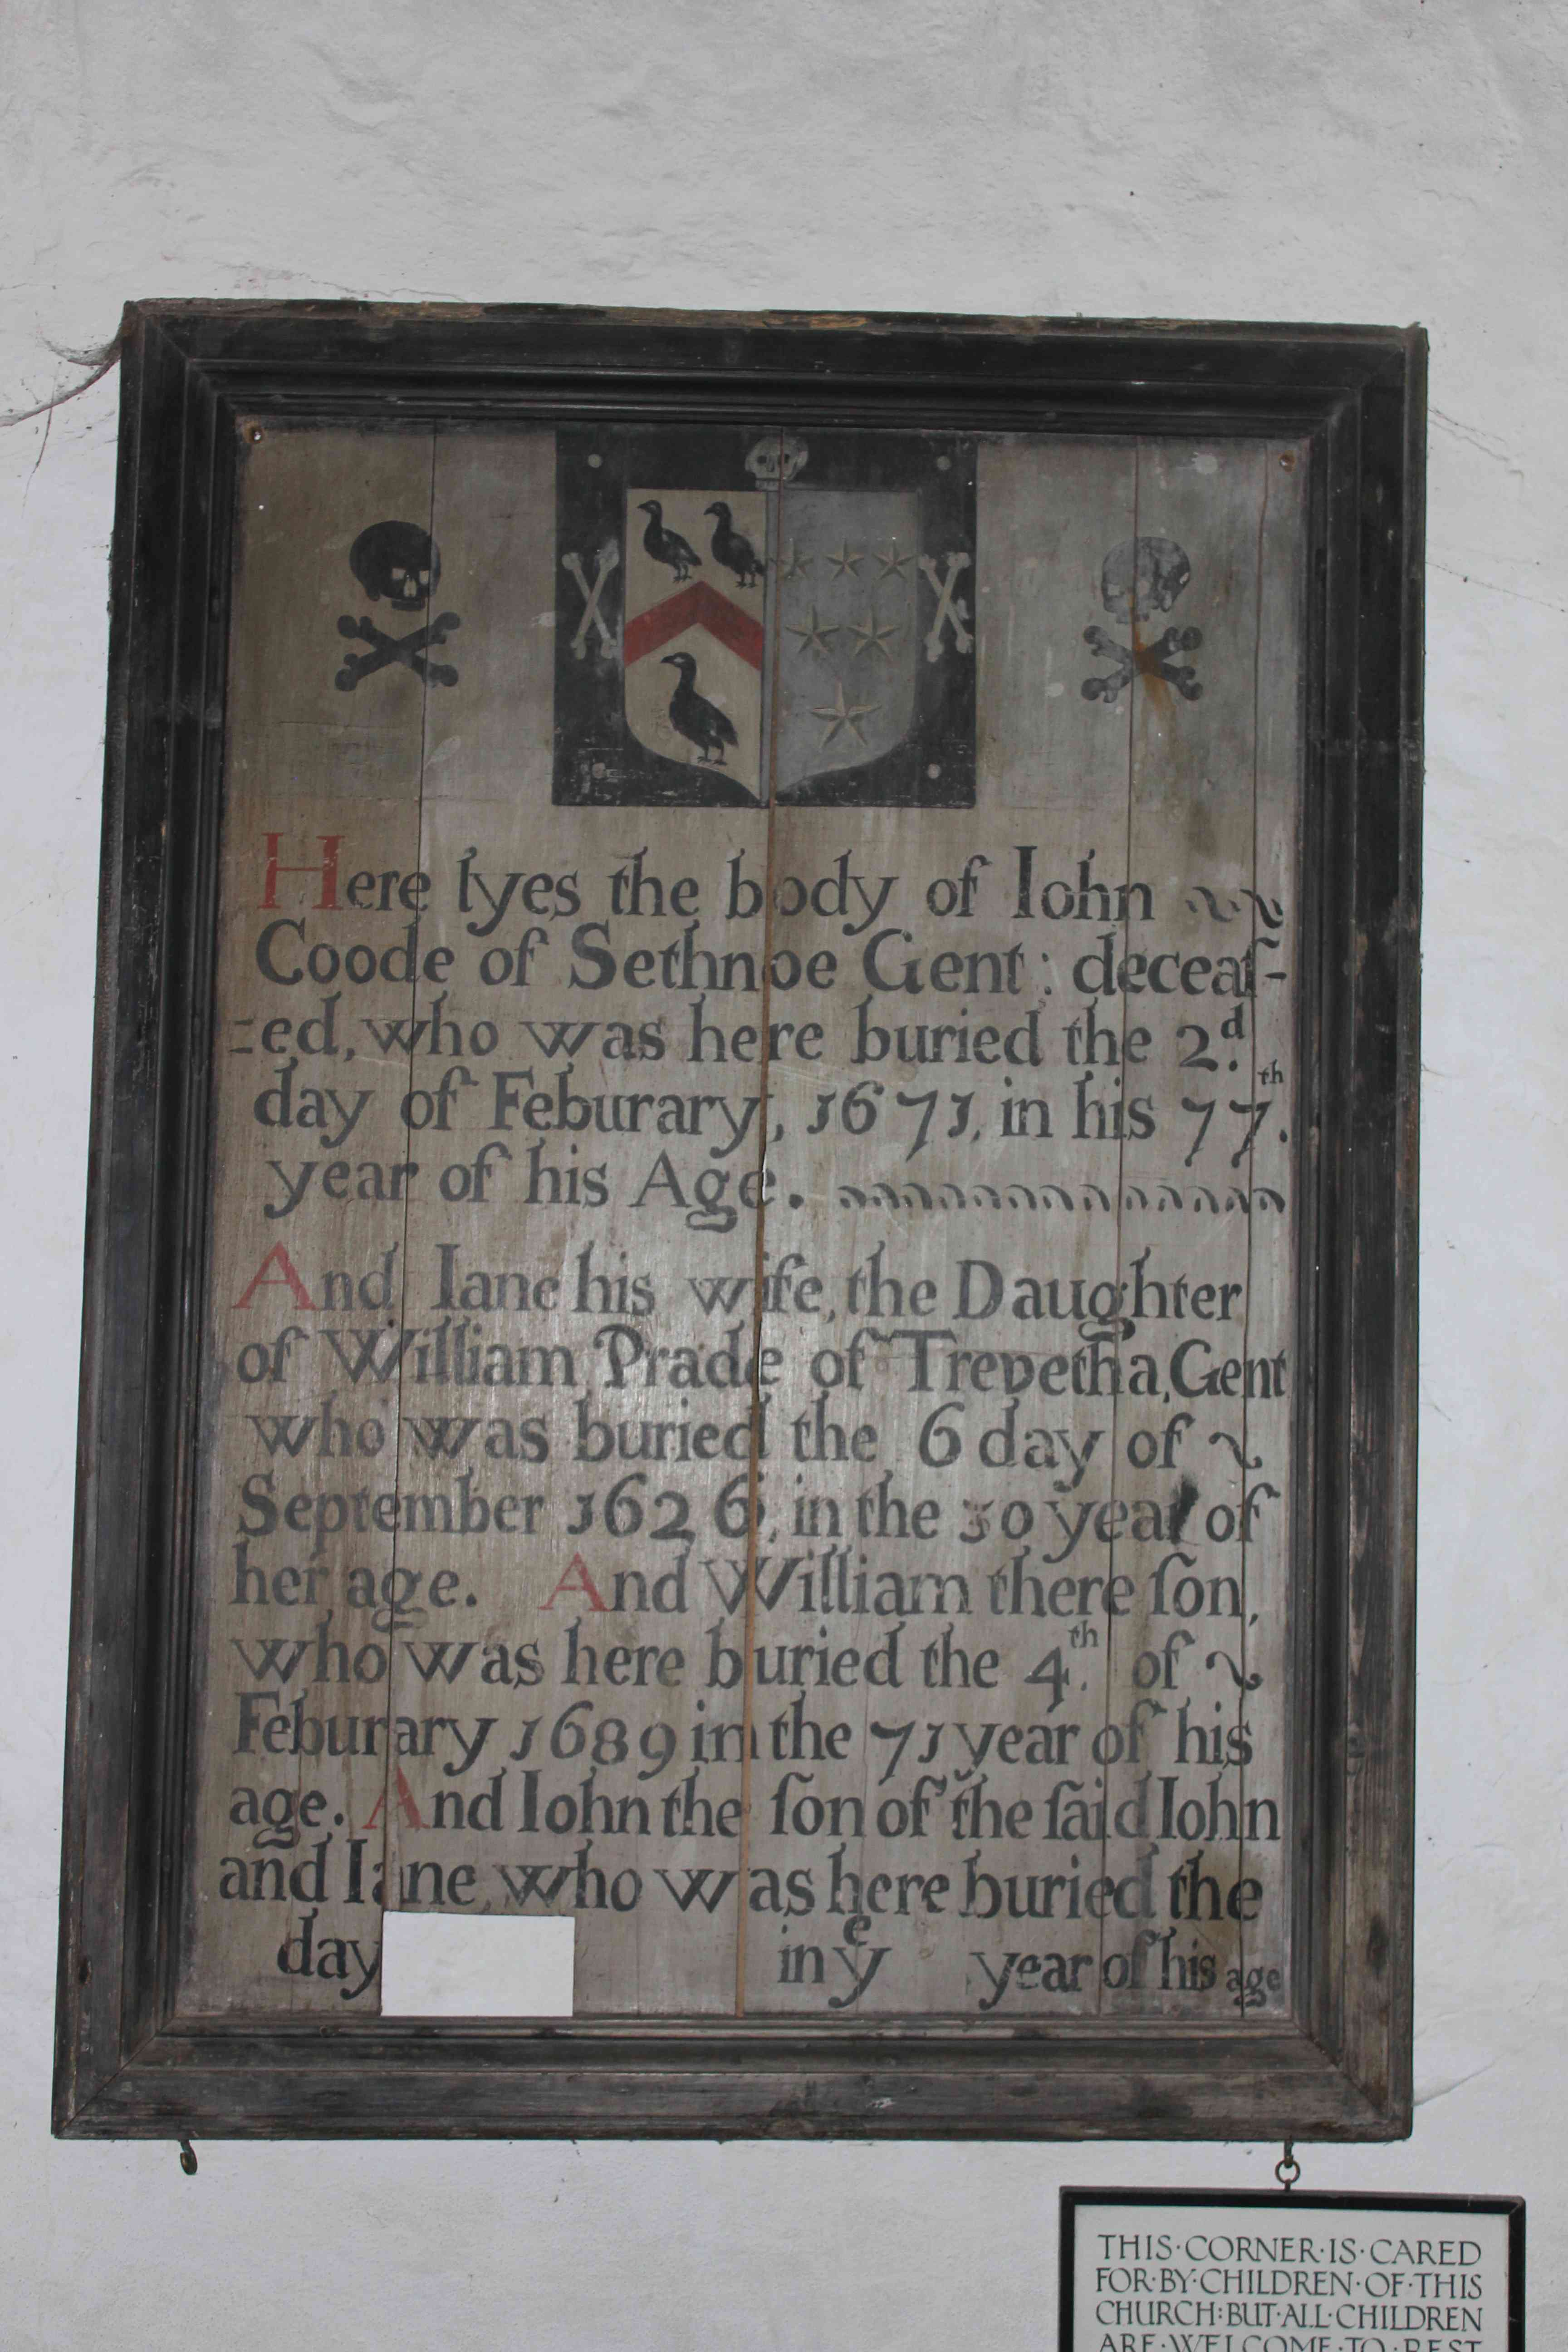 Here lyes the body of Iohn
Coode of Sethnoe Gent: deceaſ-
=ed, who was here buried the 2.d
day of Feburary, 1671, in his 77.th
year of his Age.
And Iane his wife, the Daughter
of William Prade of Trevetha, Gent
who was buried the 6 day of
September 1626, in the 30 year of
her age. And William there ſon,
who was here buried the 4th. of
Feburary 1689 in the 71 year of his
age. And Iohn the ſon of the ſaid Iohn
and Iane who was here buried the
day in ye year of his age
THIS·CORNER·IS·CARED
FOR·BY·CHILDREN·OF·THIS
CHURCH:BUT·ALL·CHILDREN
ARE·WELCOME·TO·REST